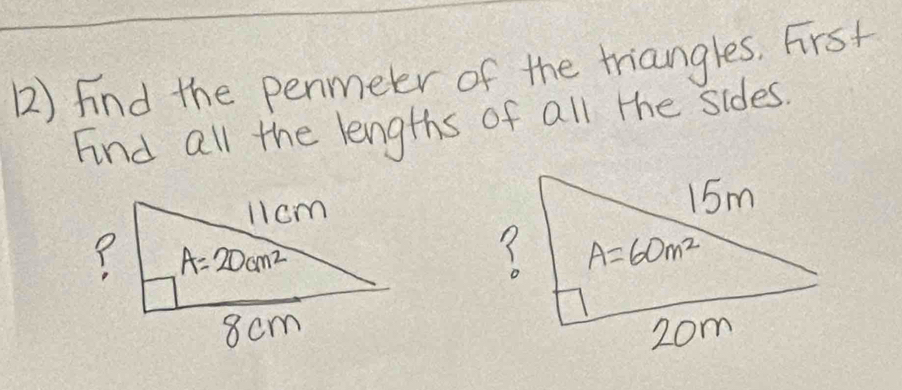 12) Find the permeter of the triangles. First
Find all the lengths of all the sides.
11cm
?
A=20cm²
8cm
15m
?
A=60m²
20m